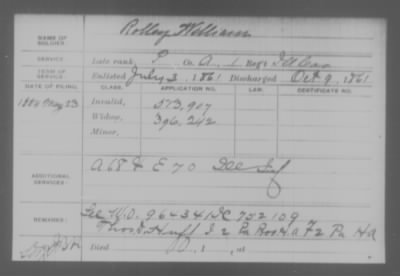 NAME OF SOLDIER: Rolley William
SERVICE: Late rank, P Co. A, 1 Reg't Ill Cav
TERM OF SERVICE: Enlisted July 3, 1861 Discharged Oct 9, 1861
DATE OF FILING. CLASS. APPLICATION NO. LAW. CERTIFICATE NO.
1886 May 23 Invalid, 573,907
Widow, 396,242
Minor,
ADDITIONAL SERVICES: A 68 & E 70 Ill Inf
REMARKS: See W.O. 964341 & C 752109
Thos Huff I 2 Pa H A F 2 Pa H A
Died , at